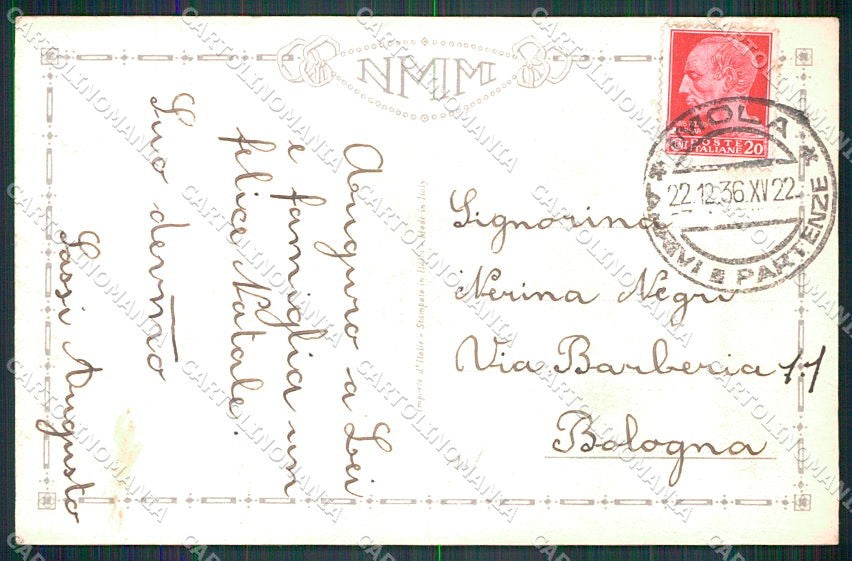 NMM
Auguro a Lei
e famiglia un
felice Natale.
Suo devmo
Sassi Augusto
Imprimé d'Italie - Stampato in Italia - Made in Italy
POSTE
ITALIANE 20
IMOLA
22.12.36.XV 22
ARRIVI E PARTENZE
Signorina
Nerina Negri
Via Barberia 11
Bologna
CARTOLINOMANIA